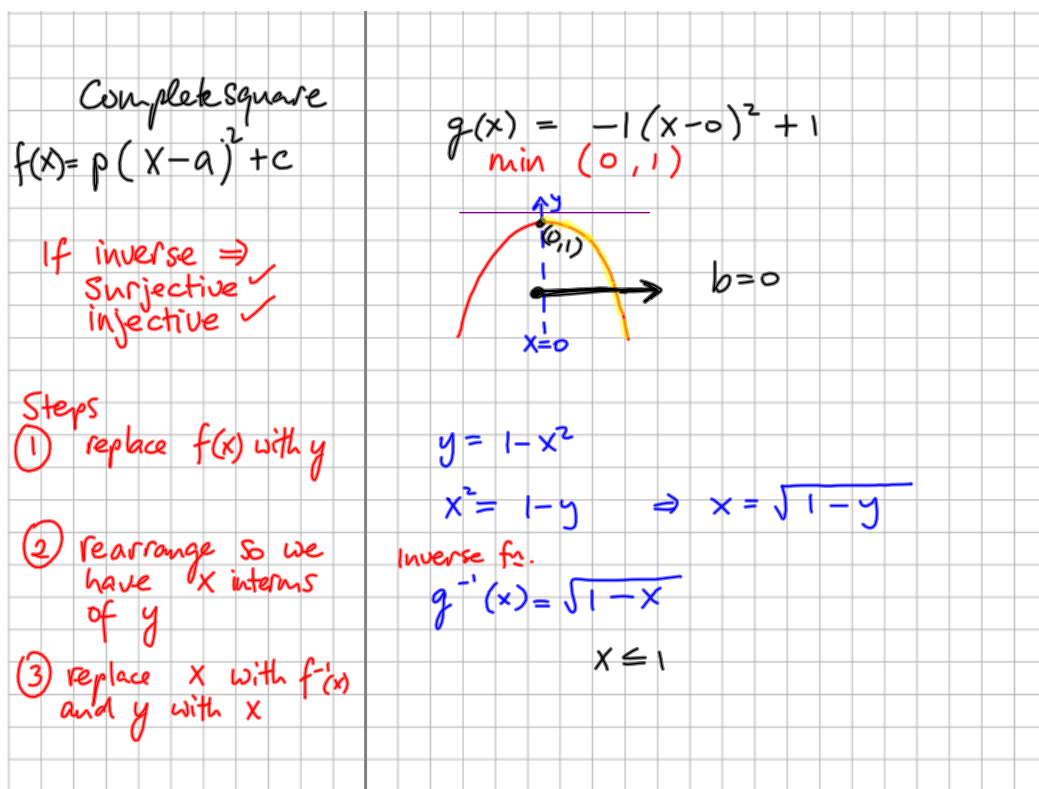 Complete square
f(x) = p(x-a)² + c
If inverse ⇒
surjective ✓
injective ✓
Steps
① replace f(x) with y
② rearrange so we
have x interms
of y
③ replace x with f⁻¹(x)
and y with x
g(x) = -1(x-0)² + 1
min (0,1)
y
(0,1)
b=0
x=0
y = 1-x²
x² = 1-y ⇒ x = √(1-y)
Inverse fn.
g⁻¹(x) = √(1-x)
x ≤ 1